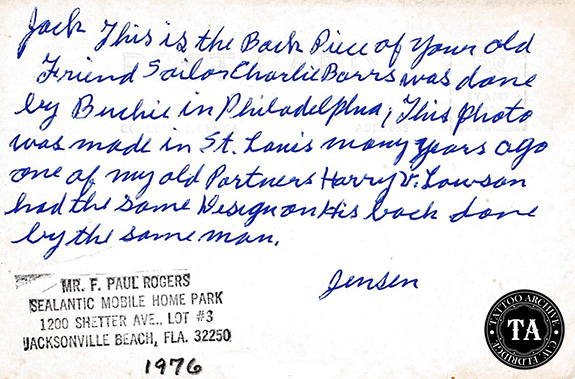 Jack This is the Back Piece of Your old
Friend Sailor Charlie Barrs was done
by Buchie in Philadelphia, This photo
was made in St. Louis many years ago
one of my old Partners Harry V. Lawson
had the same Design on His back done
by the same man.
Jensen
MR. F. PAUL ROGERS
SEALANTIC MOBILE HOME PARK
1200 SHETTER AVE., LOT #3
JACKSONVILLE BEACH, FLA. 32250
1976
TATTOO ARCHIVE
TA
C.W. ELDRIDGE